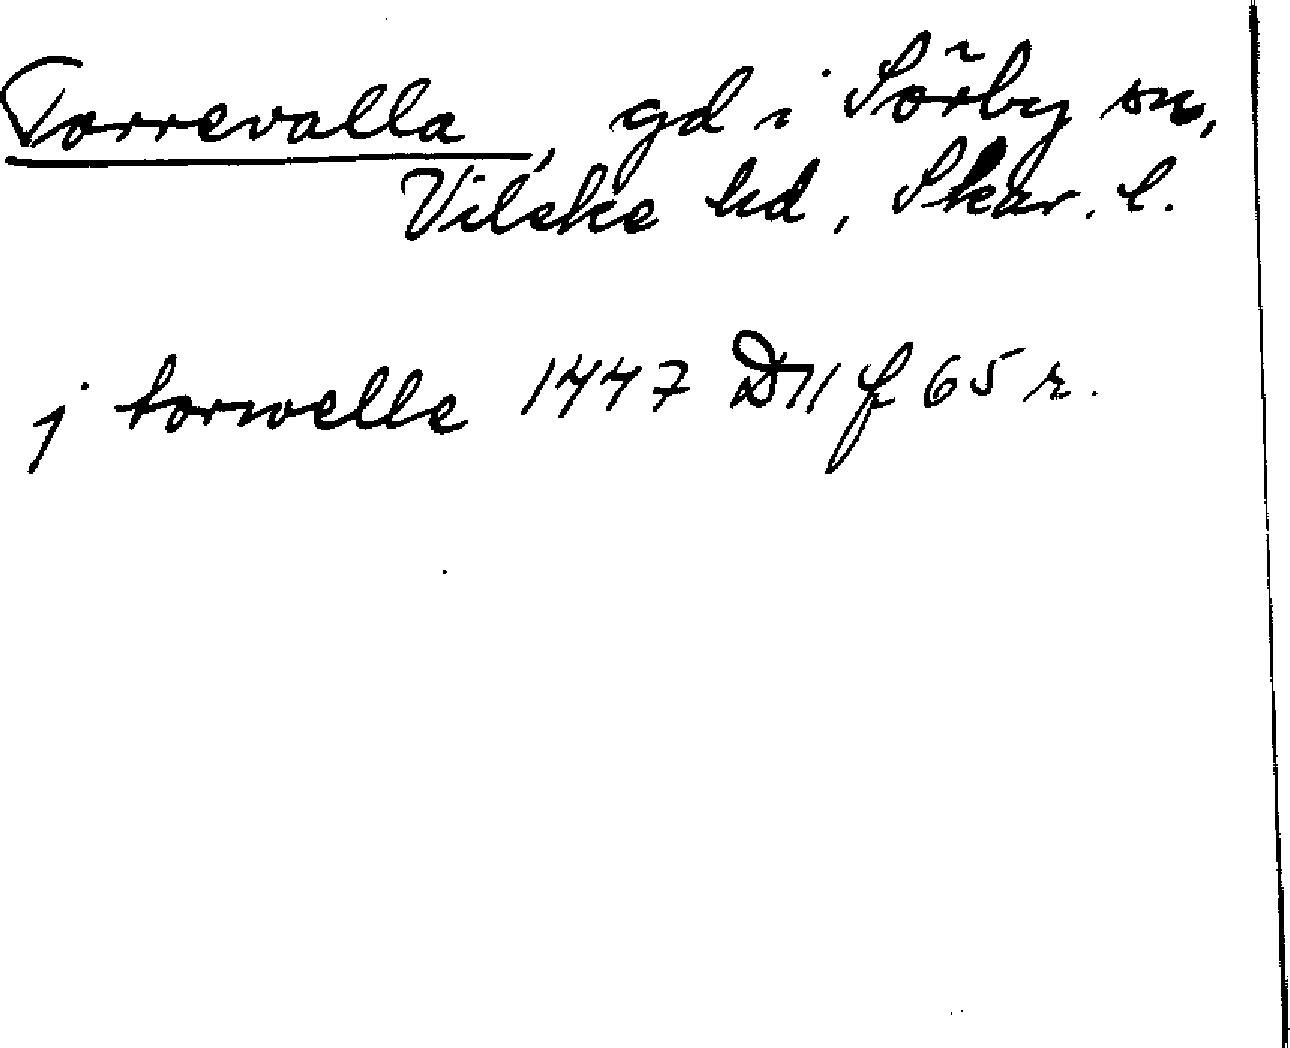 Torrevalla, gd i Sörby sn,
Vilske hd, Skar. l.
j torwelle 1447 D11 f 65 r.